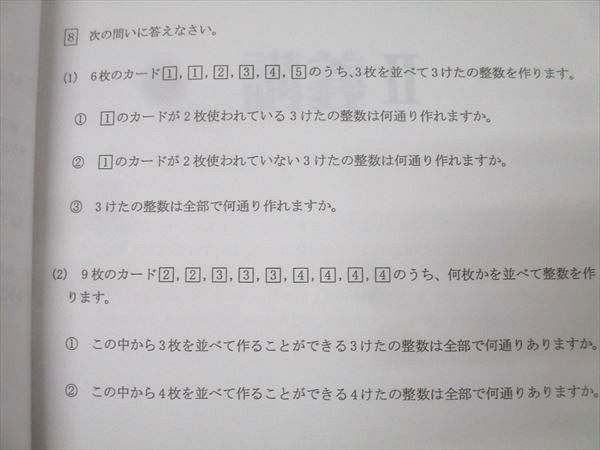 8 次の問いに答えなさい。
(1) 6枚のカード1,1,2,3,4,5のうち、3枚を並べて3けたの整数を作ります。
① 1のカードが2枚使われている3けたの整数は何通り作れますか。
② 1のカードが2枚使われていない3けたの整数は何通り作れますか。
③ 3けたの整数は全部で何通り作れますか。
(2) 9枚のカード2,2,3,3,3,4,4,4,4のうち、何枚かを並べて整数を作
ります。
① この中から3枚を並べて作ることができる3けたの整数は全部で何通りありますか。
② この中から4枚を並べて作ることができる4けたの整数は全部で何通りありますか。